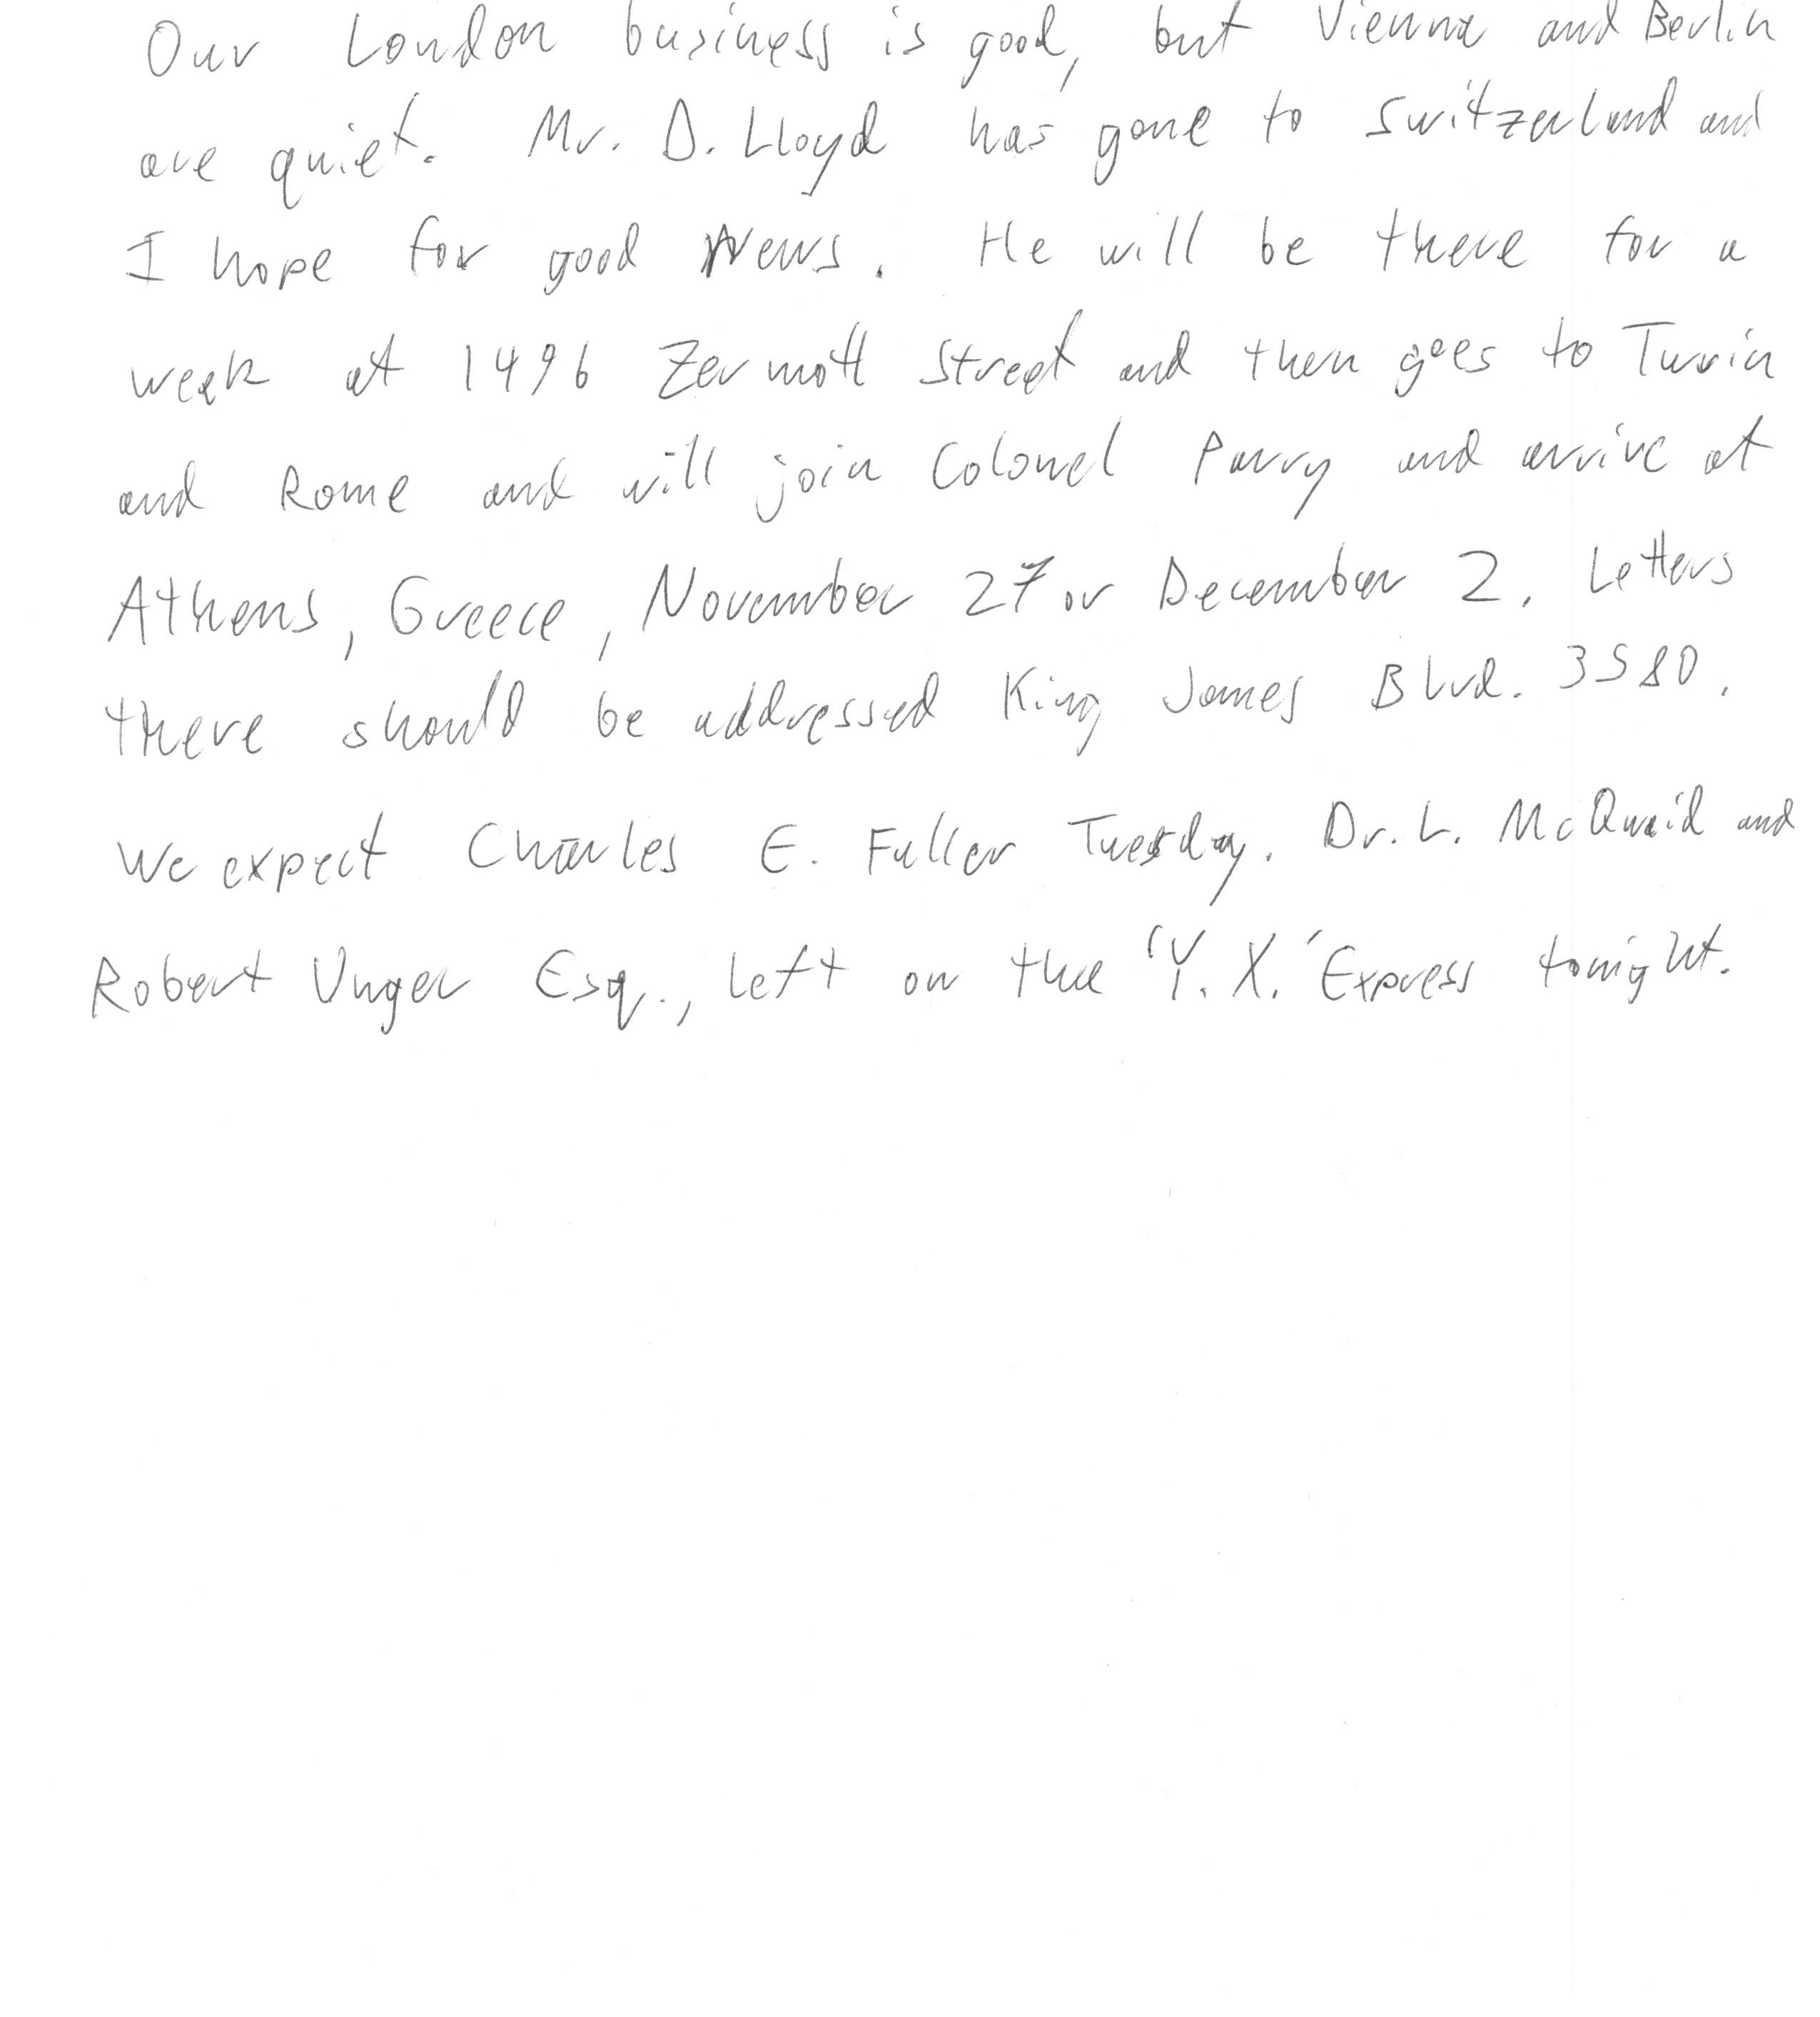 Our London business is good, but Vienna and Berlin
are quiet. Mr. D. Lloyd has gone to Switzerland and
I hope for good news. He will be there for a
week at 1496 Zermott Street and then goes to Turin
and Rome and will join Colonel Parry and arrive at
Athens, Greece, November 27 or December 2. Letters
there should be addressed King James Blvd. 3580.
We expect Charles E. Fuller Tuesday. Dr. L. McQuaid and
Robert Unger Esq., left on the 'Y. X.' Express tonight.